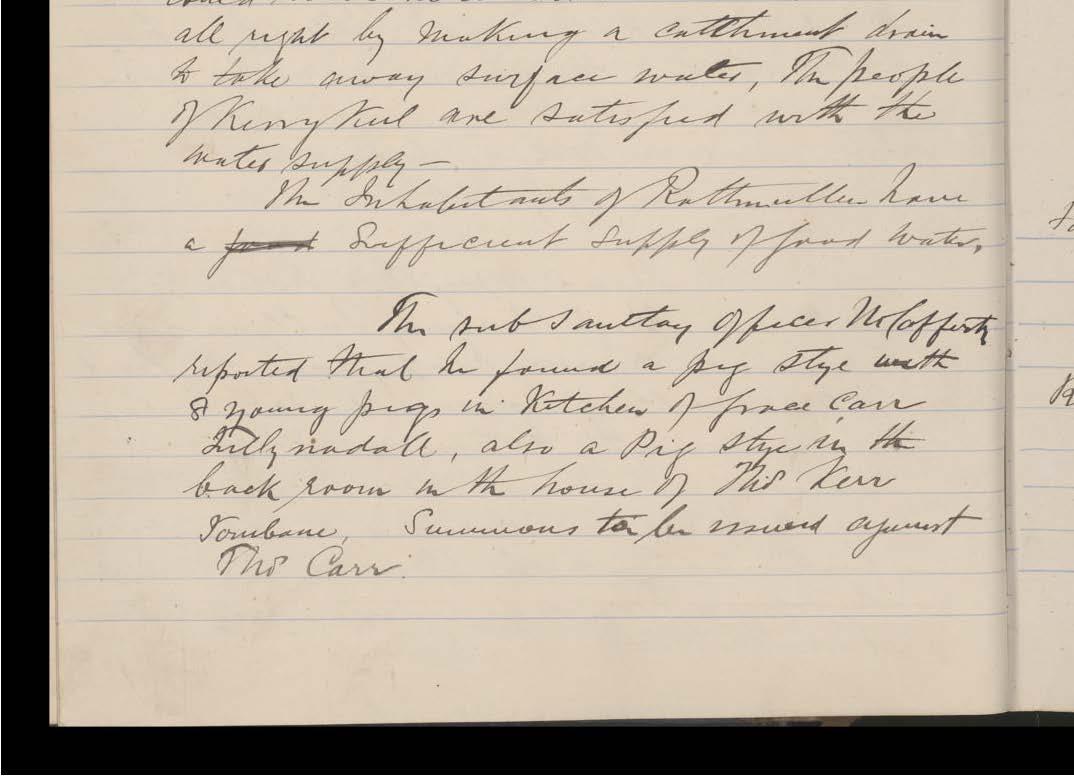 all right by making a catchment drain
to take away surface water, The people
of Kerrykeel are satisfied with the
water supply —
The Inhabitants of Rathmullen have
a good Sufficient supply of good water,
The sub Sanitary Officer McCafferty
reported that he found a pig stye with
8 young pigs in Kitchen of Grace Carr
also a Pig stye in the
back room in the house of Thos Kerr
Summons to be issued against
Thos Carr.